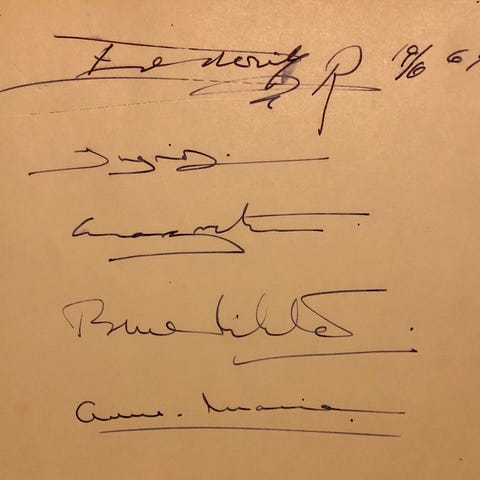 Frederik R
Ingrid.
Margrethe.
Benedikte.
Anne-Marie.